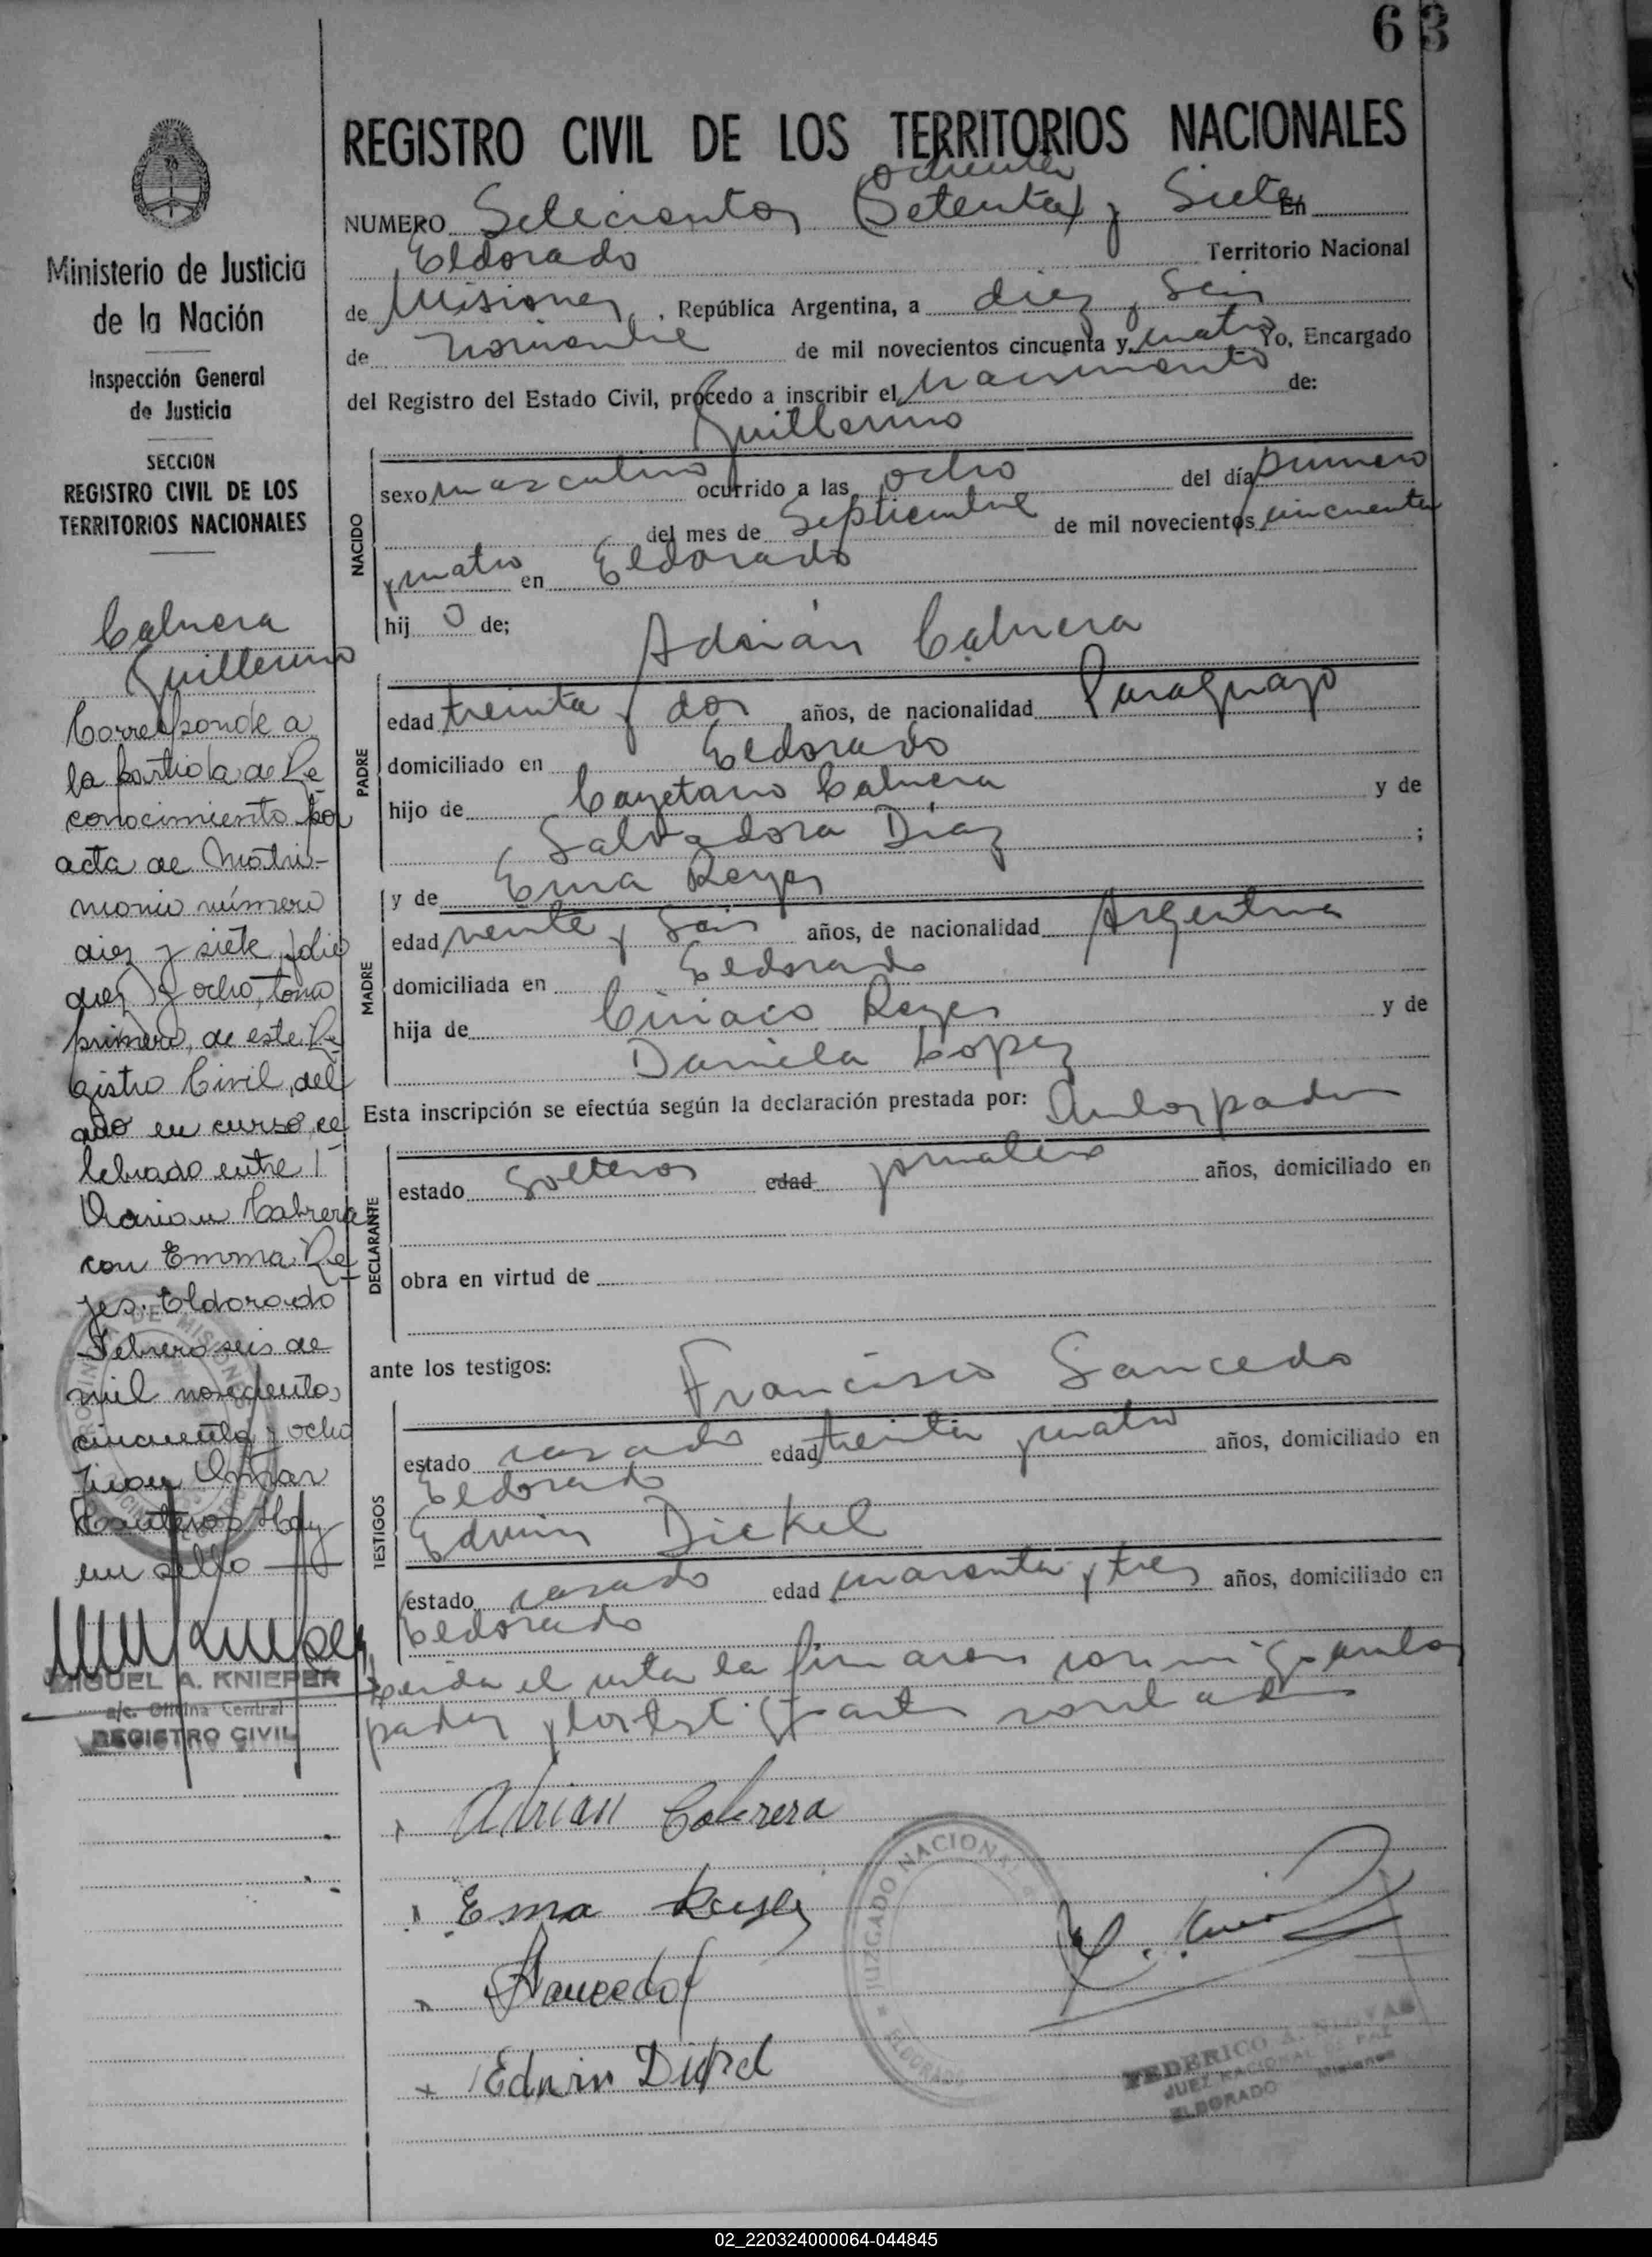 63
REGISTRO CIVIL DE LOS TERRITORIOS NACIONALES
ochenta
NUMERO Setecientos (Setenta) y Siete En
Eldorado Territorio Nacional
de Misiones, República Argentina, a diez y Seis
de noviembre de mil novecientos cincuenta y cuatro Yo, Encargado
del Registro del Estado Civil, procedo a inscribir el nacimiento de:
Guillermo
NACIDO
sexo masculino ocurrido a las ocho del día primero
del mes de Septiembre de mil novecientos cincuenta
y cuatro en Eldorado
hij o de;
Adrián Cabrera
PADRE
edad treinta y dos años, de nacionalidad Paraguayo
domiciliado en Eldorado
hijo de Cayetano Cabrera y de
Salvadora Díaz ;
y de Ema Reyes
MADRE
edad veinte y Seis años, de nacionalidad Argentina
domiciliada en Eldorado
hija de Ciriaco Reyes y de
Daniela Lopez
Esta inscripción se efectúa según la declaración prestada por: Ambos padres
DECLARANTE
estado Solteros edad jornalero años, domiciliado en
obra en virtud de
ante los testigos: Francisco Saucedo
TESTIGOS
estado casado edad treinta y cuatro años, domiciliado en
Eldorado
Edwin Dickel
estado casado edad cuarenta y tres años, domiciliado en
Eldorado
Leida el acta la firmaron conmigo ambos
padres y los testigos antes nombrados
Adrian Cabrera
Ema Reyes
FSaucedo
Edwin Dickel
JUZGADO NACIONAL
ELDORADO
FEDERICO A.
JUEZ NACIONAL DE PAZ
ELDORADO Misiones
Ministerio de Justicia
de la Nación
Inspección General
de Justicia
SECCION
REGISTRO CIVIL DE LOS
TERRITORIOS NACIONALES
Cabrera
Guillermo
Corresponde a
la partida de Re
conocimiento por
acta de Matri-
monio número
diez y siete, folio
diez y ocho, tomo
primero, de este Re
gistro Civil, del
año en curso, ce
lebrado entre
Adrian Cabrera
con Emma Re
yes. Eldorado
Febrero seis de
mil novecientos
cincuenta y ocho
Juan
Hay
un sello
MIGUEL A. KNIEPER
a/c. Oficina Central
REGISTRO CIVIL
02_220324000064-044845